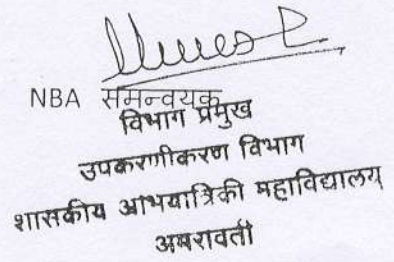 NBA समन्वयक
विभाग प्रमुख
उपकरणीकरण विभाग
शासकीय अभियांत्रिकी महाविद्यालय
अमरावती